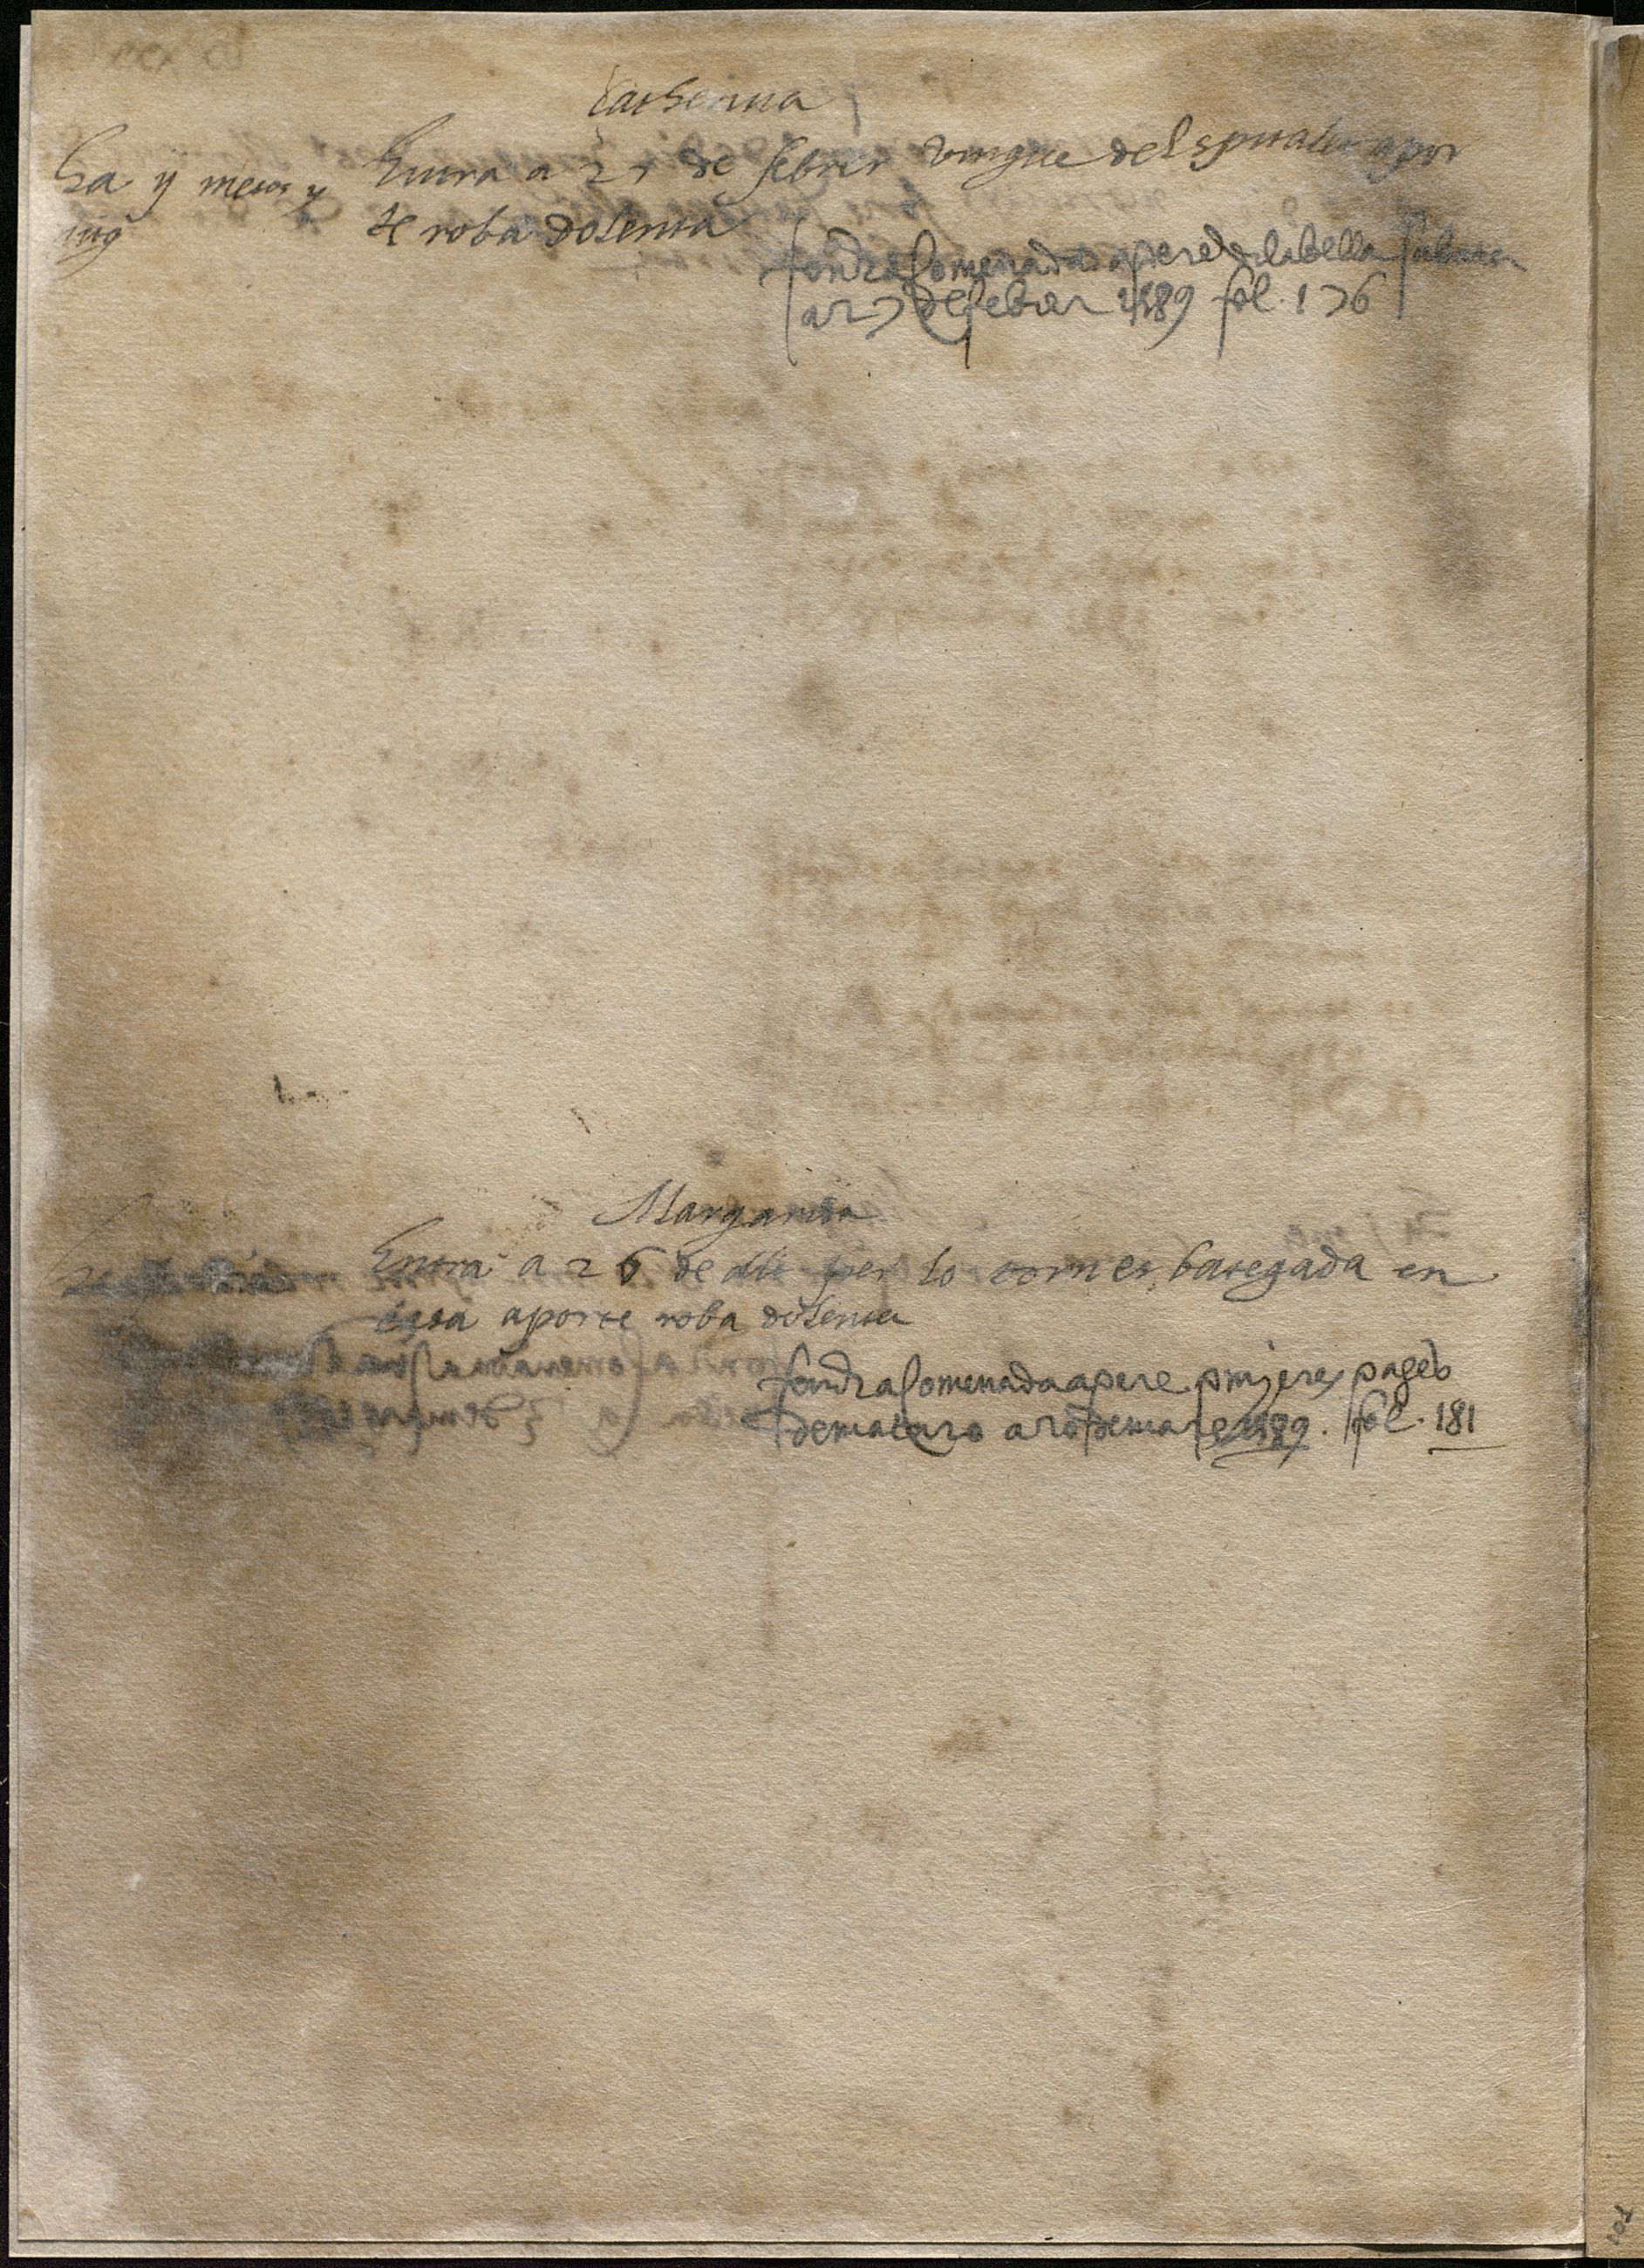 Catherina
Ha ij mesos y
mig
Entra a 27 de febrer vingue del spitalet apor
te roba dolenta
fonch comenada a pere de labella
a 27 de febrer 1589 fol. 176
Margarita
Entra a 26 de dit per lo torn es bategada en
casa aporte roba dolenta
fonch comenada a pere pages
de mataro a de mars 1589. fol. 181